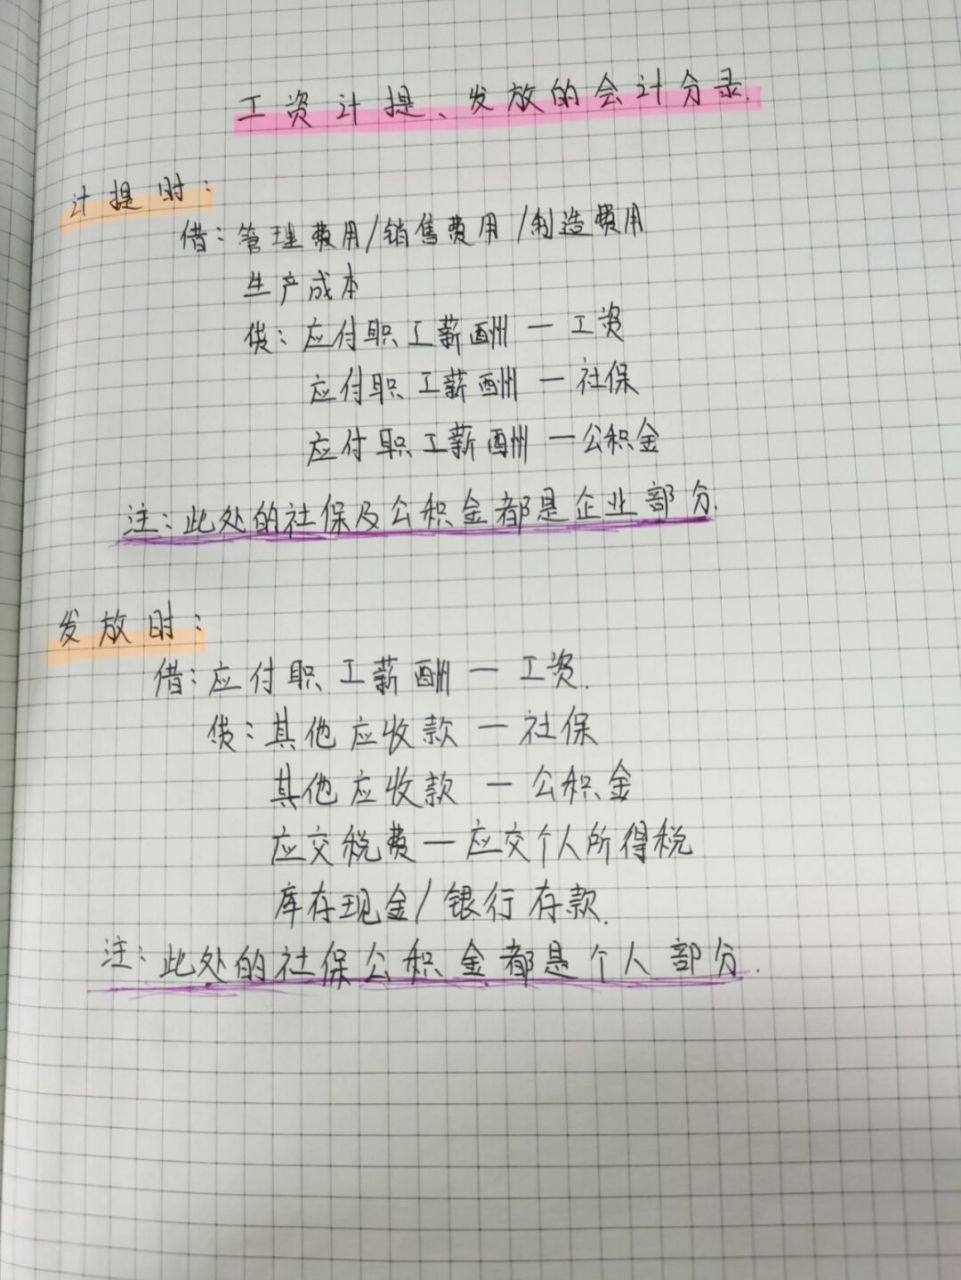 工资计提、发放的会计分录.
计提时:
借:管理费用/销售费用/制造费用
生产成本
贷:应付职工薪酬—工资
应付职工薪酬—社保
应付职工薪酬—公积金
注:此处的社保及公积金都是企业部分.
发放时:
借:应付职工薪酬—工资.
贷:其他应收款—社保
其他应收款—公积金
应交税费—应交个人所得税
库存现金/银行存款.
注:此处的社保公积金都是个人部分.